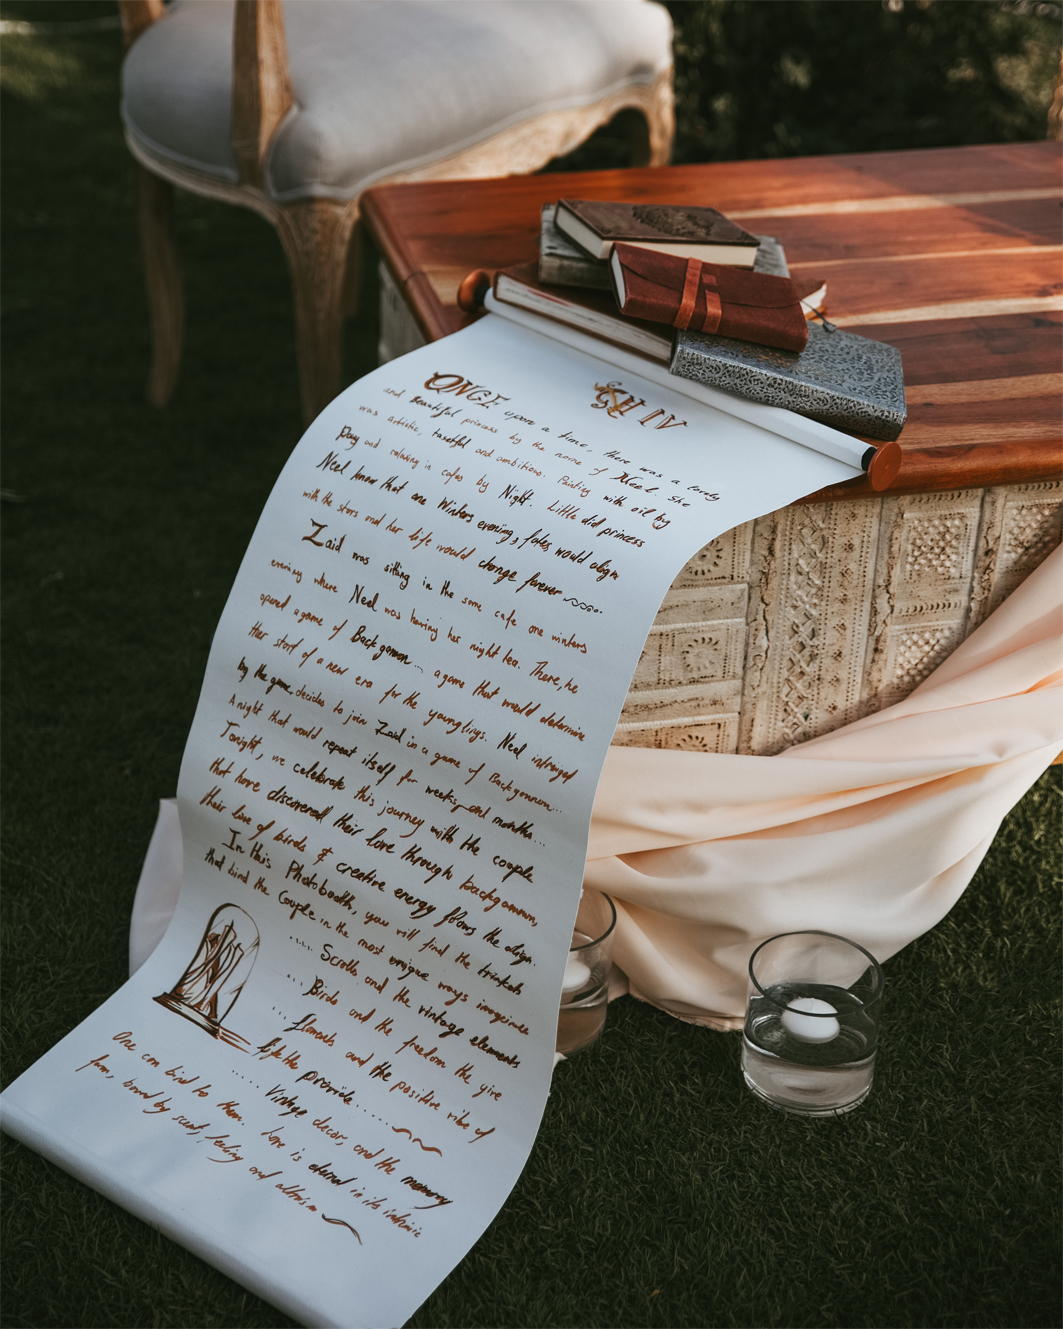 ONCE upon a time, there was a lovely
and Beautiful princess by the name of Neel. She
was artistic, tasteful and ambitious. Painting with oil by
Day and relaxing in cafes by Night. Little did princess
Neel know that one Winters evening, fates would align
with the stars and her life would change forever
Zaid was sitting in the same cafe one winters
evening where Neel was having her night tea. There, he
opened a game of Backgammon... a game that would determine
the start of a new era for the younglings. Neel intrigued
by the game, decides to join Zaid in a game of Backgammon...
A night that would repeat itself for weeks and months...
Tonight, we celebrate this journey with the couple
that have discovered their love through backgammon,
their love of birds & creative energy flows the
In this Photobooth, you will find the trinkets
that bind the Couple in the most unique ways imaginable
.... Scrolls and the vintage elements
... Birds and the freedom the give
... and the positive vibe of
life the provide.....
..... Vintage decor, and the memory
One can bind to them. Love is eternal in its
form, bound by scent, feeling and